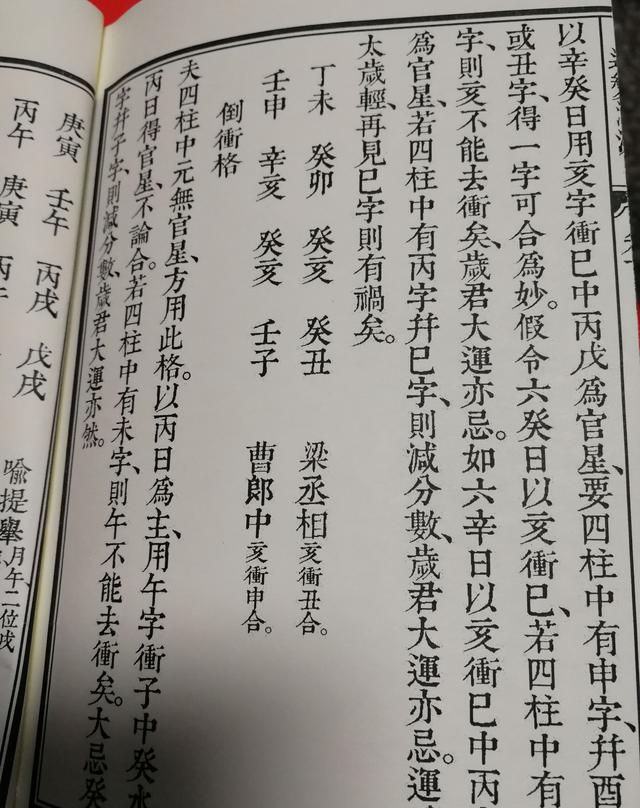 以辛癸日用亥字衝巳中丙戊爲官星、要四柱中有申字、幷酉
或丑字、得一字可合爲妙。假令六癸日以亥衝巳、若四柱中有
字、則亥不能去衝矣、歲君大運亦忌。如六辛日以亥衝巳中丙
爲官星、若四柱中有丙字幷巳字、則減分數、歲君大運亦忌。運
太歲輕、再見巳字則有禍矣。
丁未 癸卯 癸亥 癸丑 梁丞相亥衝丑合。
壬申 辛亥 癸亥 壬子 曹郎中亥衝申合。
倒衝格
夫四柱中元無官星、方用此格。以丙日爲主、用午字衝子中癸水
丙日得官星、不論合。若四柱中有未字、則午不能去衝矣。大忌癸
字幷子字、則減分數、歲君大運亦然。
庚寅 壬午 丙戌 戊戌 喻提舉月午二位戌
丙午 庚寅